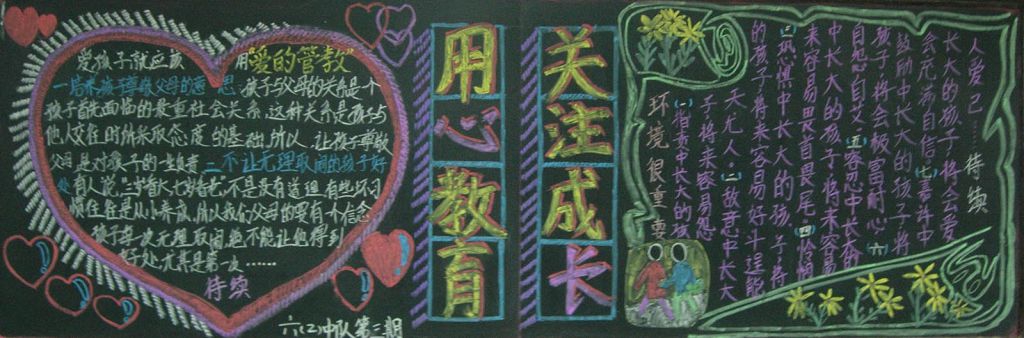 爱孩子就应该
用爱的管教
一培养孩子尊敬父母的意思 孩子与父母的关系是个
孩子首先面临的最重社会关系,这种关系是孩子与
他人交往时所采取态度的基础,所以,让孩子尊敬
父母是对孩子的
二不让无理取闹的孩子好
处 有人说,三岁看大七岁看老,不是没有道理,有些坏习
惯往往是从小养成,所以我们父母的要有个信念
孩子每次无理取闹绝不能让他得到
好处尤其是第一次……
待续
六(2)中队第三期
用心教育
关注成长
环境很重要
(一)指责中长大的孩
子将来容易怨
天尤人(二)敌意中长大
的孩子将来容易好斗逞能
(三)恐惧中长大的孩子将
来容易畏首畏尾(四)怜悯
中长大的孩子将来容易
自怨自艾(五)容忍中长大的
孩子将会极富耐心(六)
鼓励中长大的孩子将
会充满自信(七)嘉许中
长大的孩子将会爱
人爱己……待续